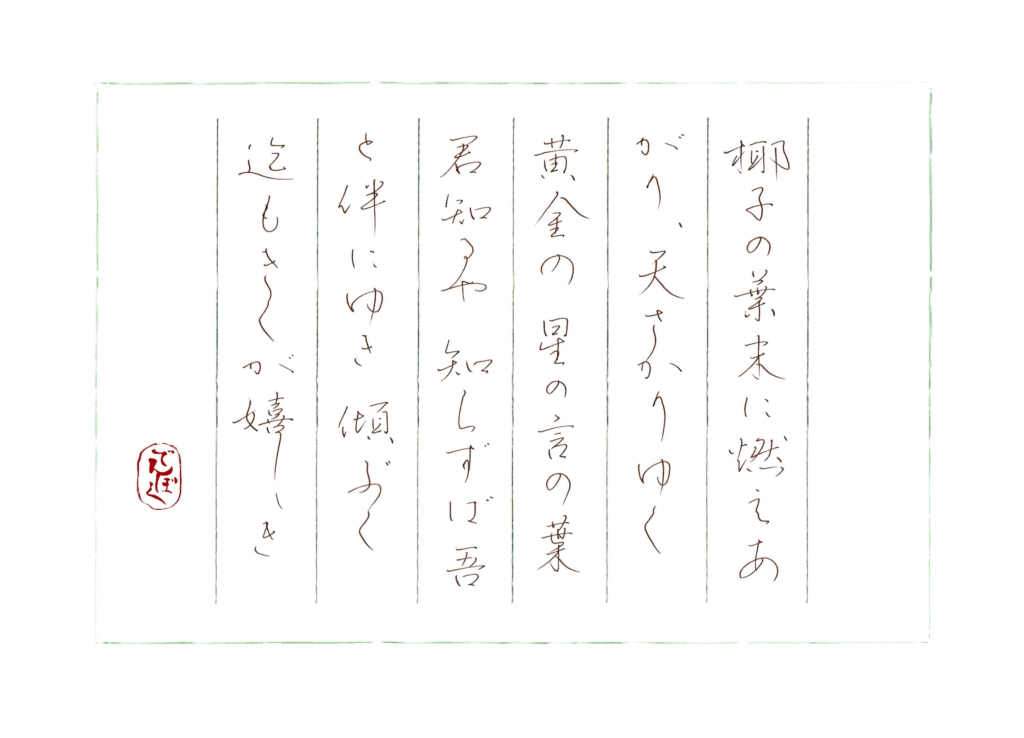 椰子の葉末に燃えあ
がり、天さかりゆく
黄金の 星の言の葉
君知るや 知らずば吾
と伴にゆき 傾ぶく
迄もきくが嬉しき
でんぼく